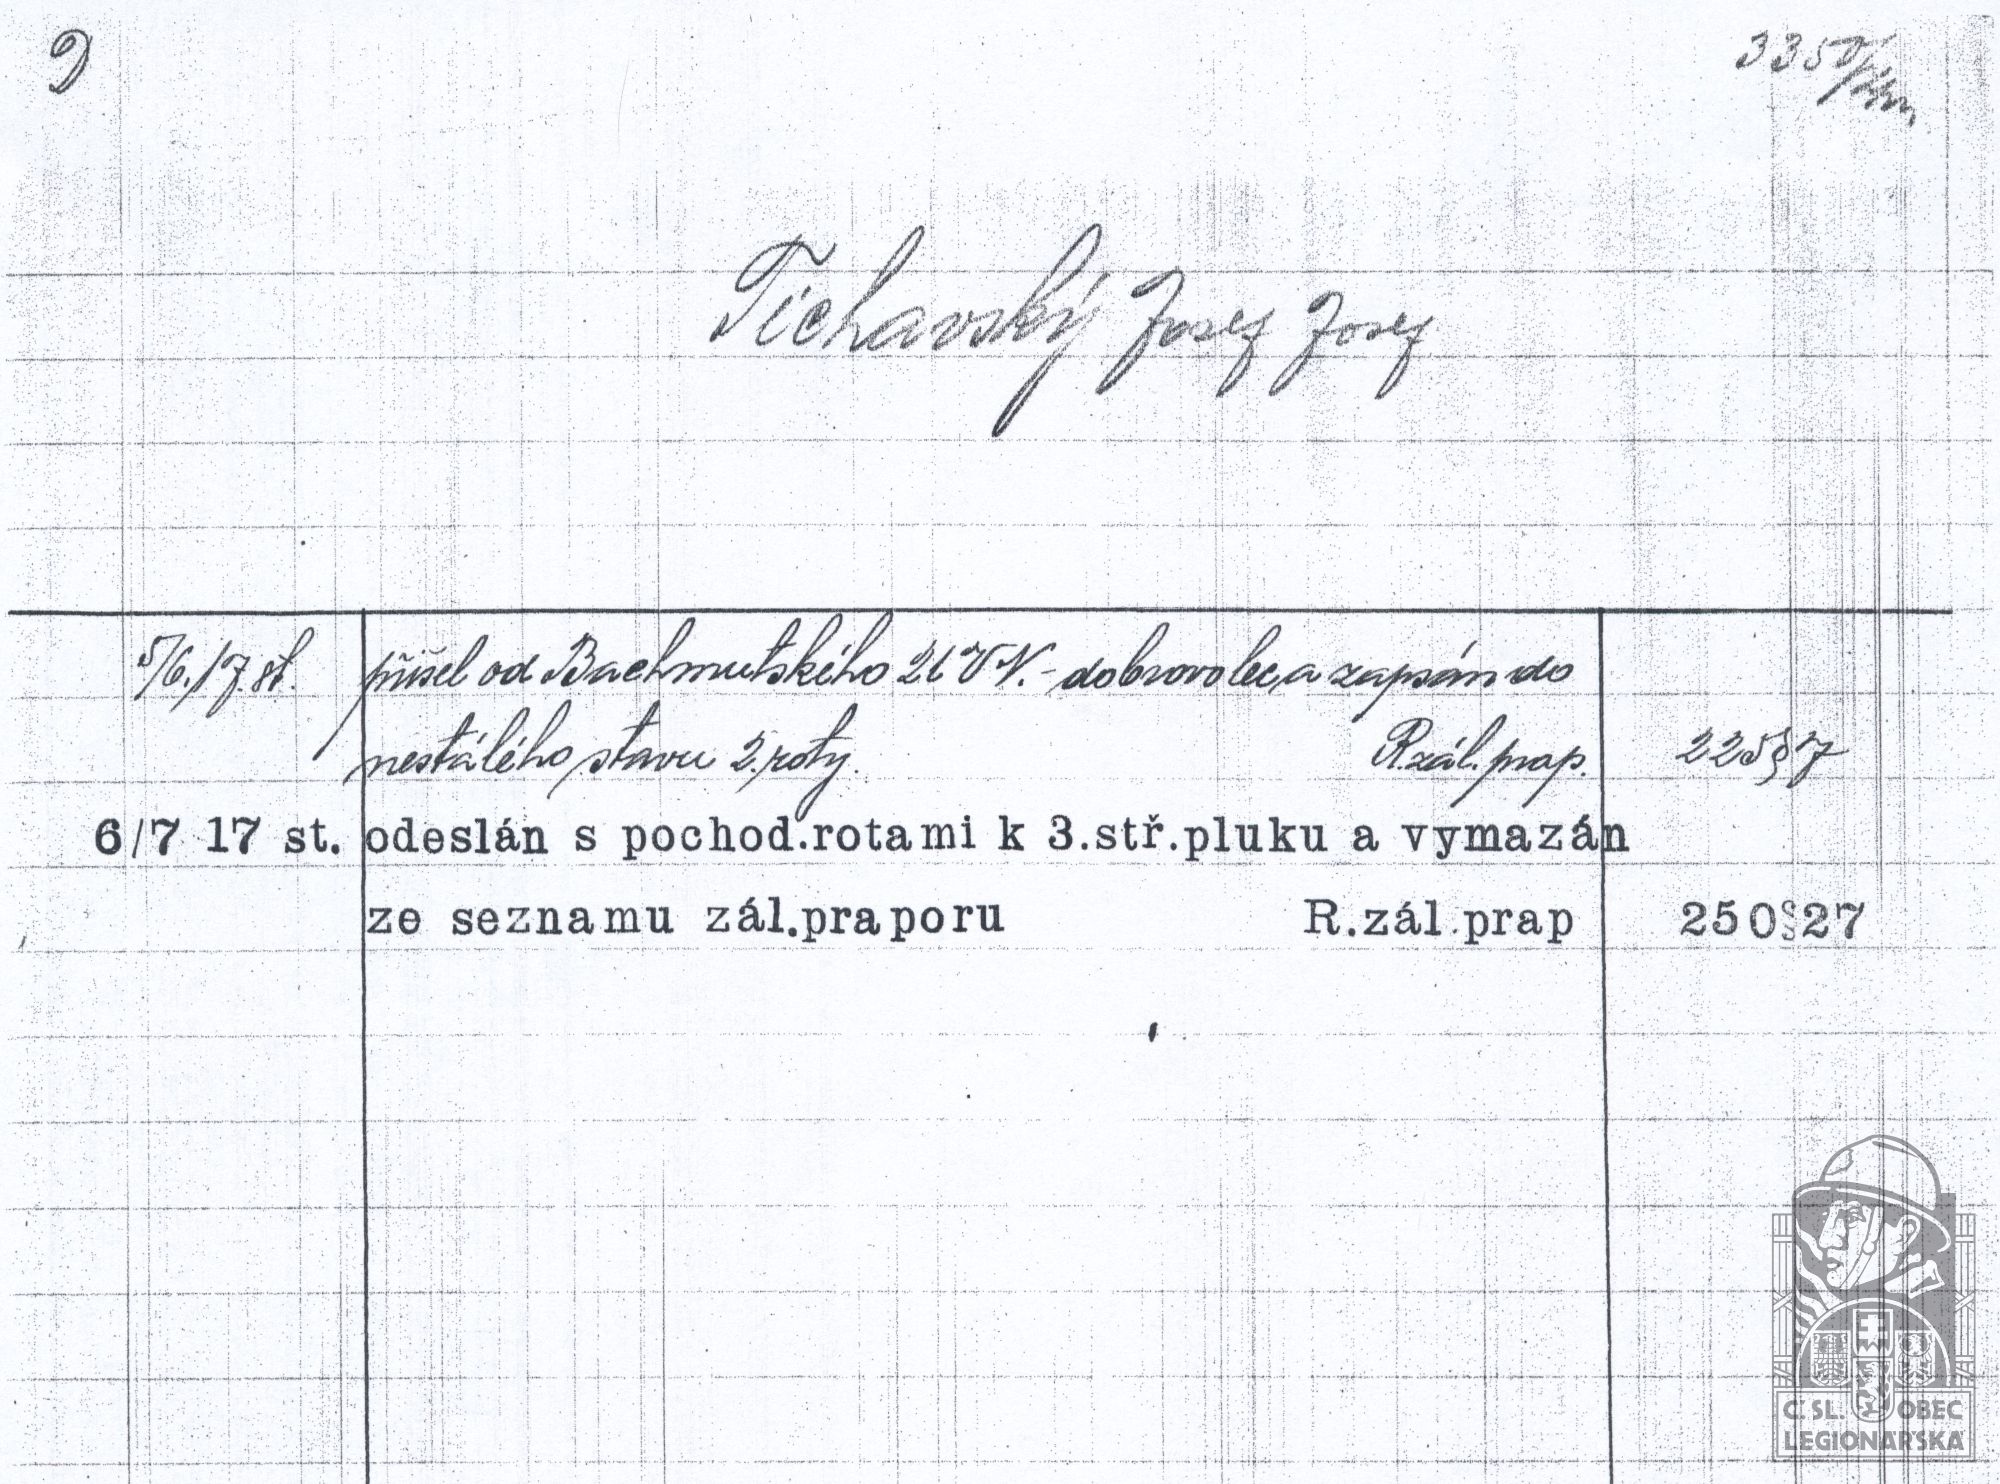 9
3350
Tichavský Josef Josef
5/6.17.st. přišel od Bachmutského 21 V N.- dobrovolec, a zapsán do
nestálého stavu 2. roty. R.zál.prap. 225§7
6/7 17 st. odeslán s pochod.rotami k 3.stř.pluku a vymazán
ze seznamu zál.praporu R.zál.prap 250§27
Č.SL. OBEC
LEGIONÁŘSKÁ